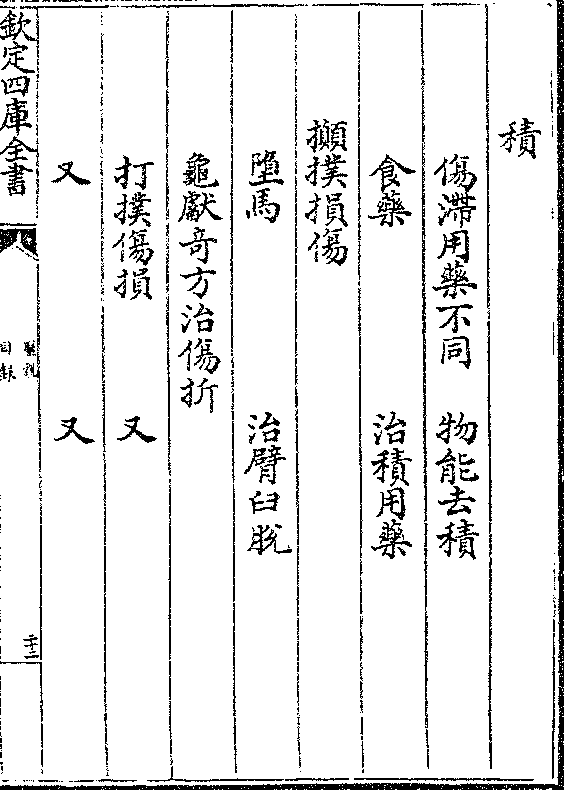 積
傷滯用藥不同　物能去積
食藥　治積用藥
攧撲損傷
墮馬　治臂臼脫
龜獻奇方治傷折
打撲傷損　又
又　又
欽定四庫全書
醫說
目録
二十二